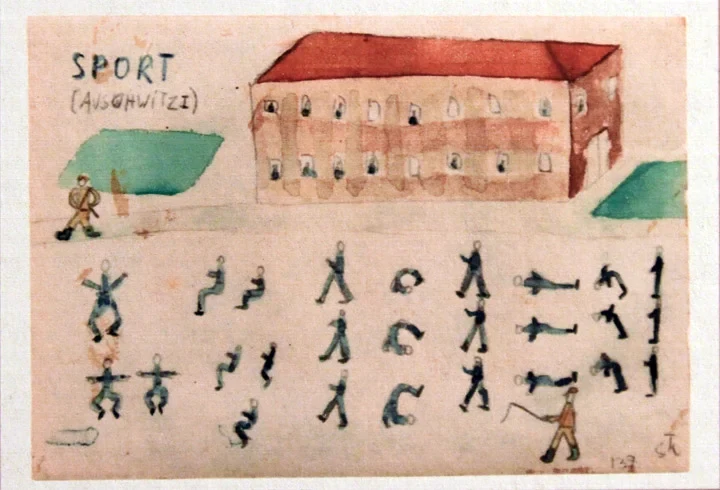 SPORT
(AUSCHWITZI)
137